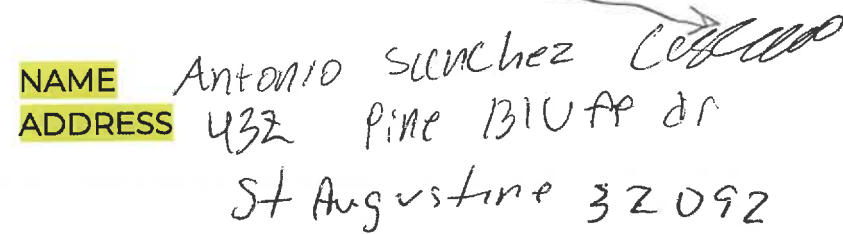 NAME Antonio Sanchez
ADDRESS 432 Pine Bluff dr
St Augustine 32092